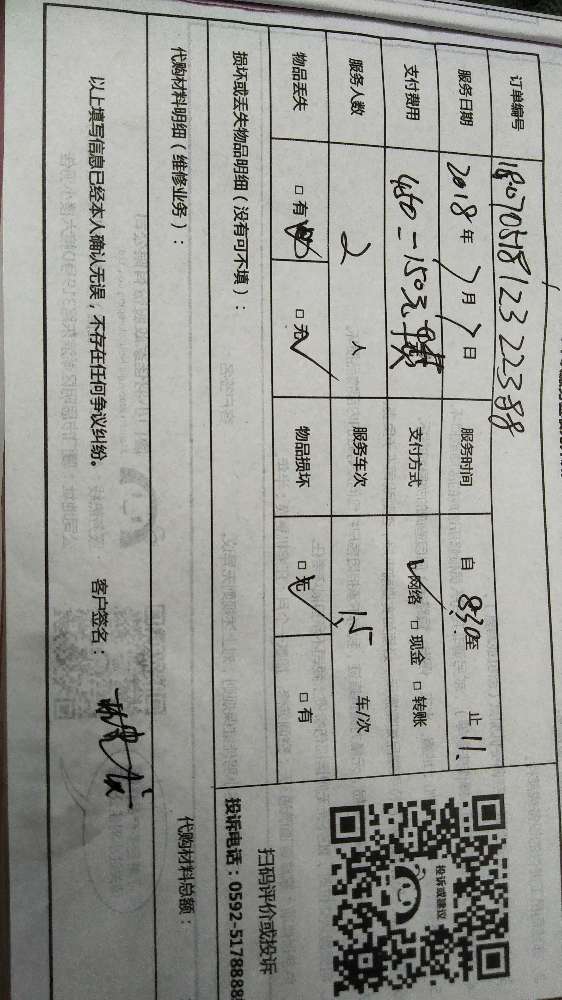 订单编号 18070518123 22388
服务日期 2018年7月7日 服务时间 自 8:30至 止 11:
支付费用 450－150元 支付方式 ✓网络 □现金 □转账
服务人数 2 人 服务车次 1.5 车/次
物品丢失 □有 □无✓ 物品损坏 □无✓ □有
损坏或丢失物品明细（没有可不填）：
代购材料明细（维修业务）： 代购材料总额：
以上填写信息已经本人确认无误，不存在任何争议纠纷。 客户签名：
投诉或建议
扫码评价或投诉
投诉电话：0592-5178888